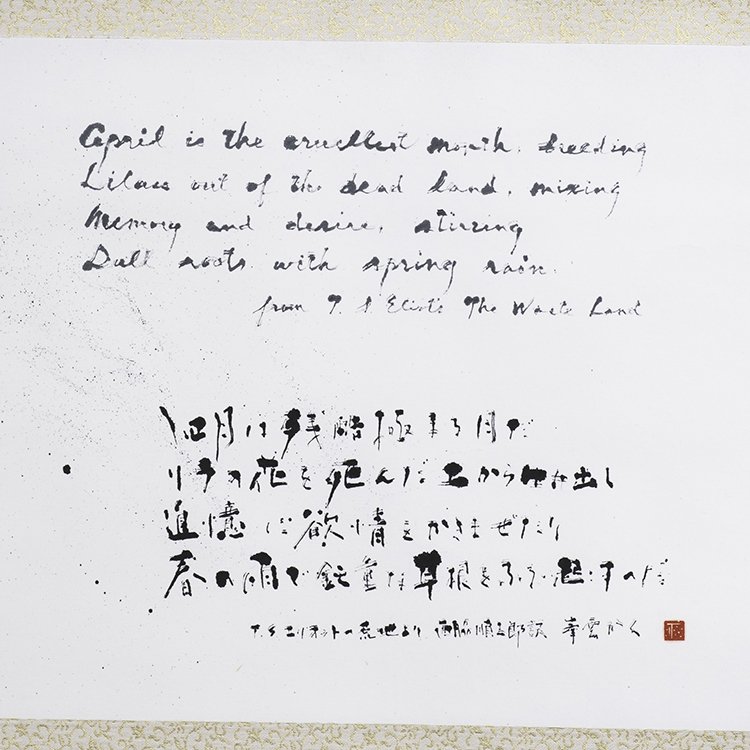 April is the cruellest month, breeding
Lilacs out of the dead land, mixing
Memory and desire, stirring
Dull roots with spring rain.
from T. S Eliot's The Waste Land
四月は残酷極まる月だ
リラの花を死んだ土から生み出し
追憶に欲情をかきまぜたり
春の雨で鈍重な草根をふるい起すのだ
T.S エリオットの荒地より 西脇順三郎訳 雲かく